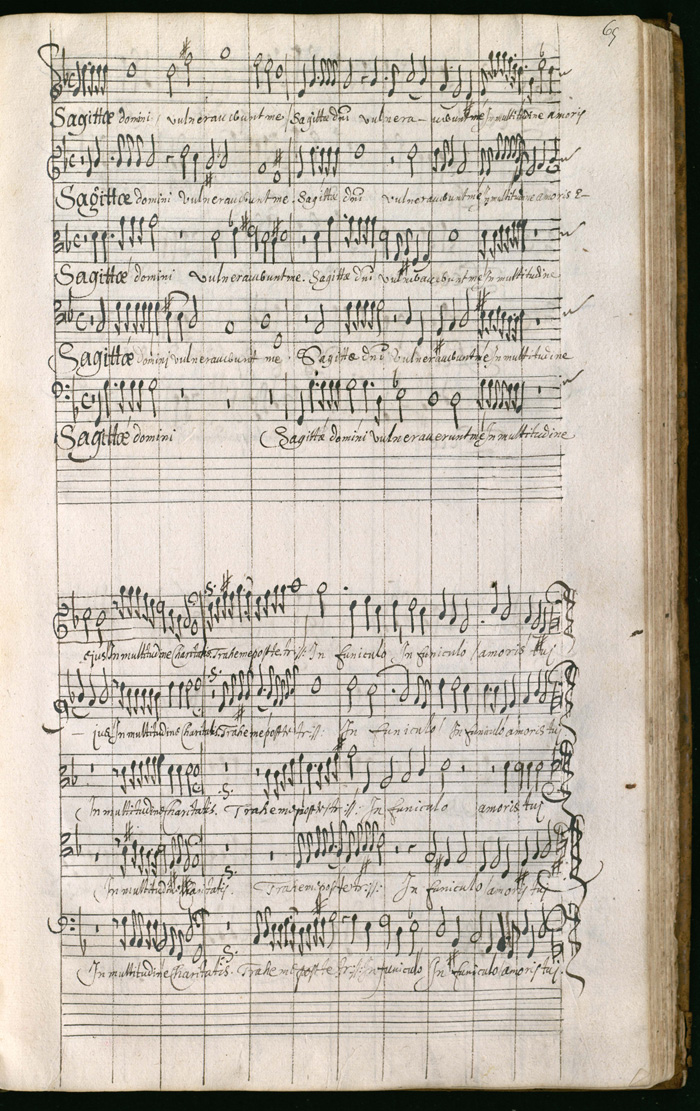 65
Sagittæ domini / vulneraverunt me / Sagittæ dñi vulnera- verunt me In multitudine amoris
Sagittæ domini vulneraverunt me. Sagittæ dñi vulneraverunt me In multitudine amoris E-
Sagittæ domini vulneraverunt me. Sagittæ dñi vulneraverunt me In multitudine
Sagittæ domini vulneraverunt me. Sagittæ dñi vulneraverunt me In multitudine
Sagittæ domini Sagittæ domini vulneraverunt me In multitudine
-jus In multitudine Charitatis. Trahe me poste tr :// : In funiculo In funiculo / amoris tuj
- jus In multitudine Charitatis. Trahe me poste tr :// : In funiculo / In funiculo amoris tuj
In multitudine Charitatis. Trahe me poste tr :// : In funiculo amoris tuj
In multitudine Charitatis. Trahe me poste tr :// : In funiculo / amoris tuj
In multitudine Charitatis. Trahe me poste tr :// : In funiculo / In funiculo / amoris tuj